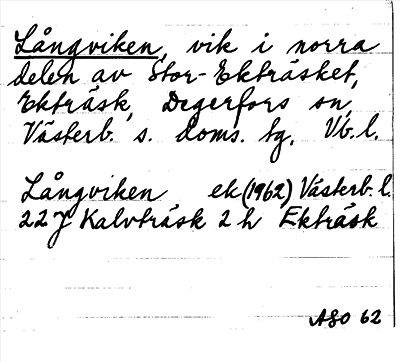 Långviken, vik i norra
delen av Stor-Ekträsket,
Ekträsk, Degerfors sn,
Västerb. s. doms. tg, Vb. l.
Långviken ek (1962) Västerb. l.
22J Kalvträsk 2 h Ekträsk
ASO 62